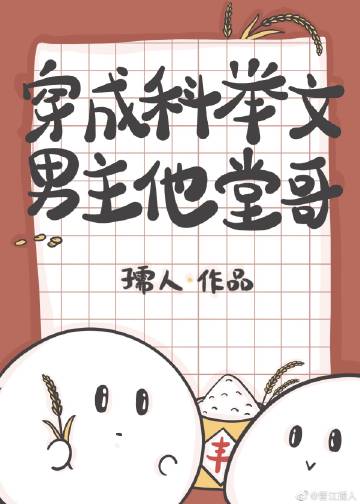 穿成科举文
男主他堂哥
孺人·作品
丰
@晋江孺人